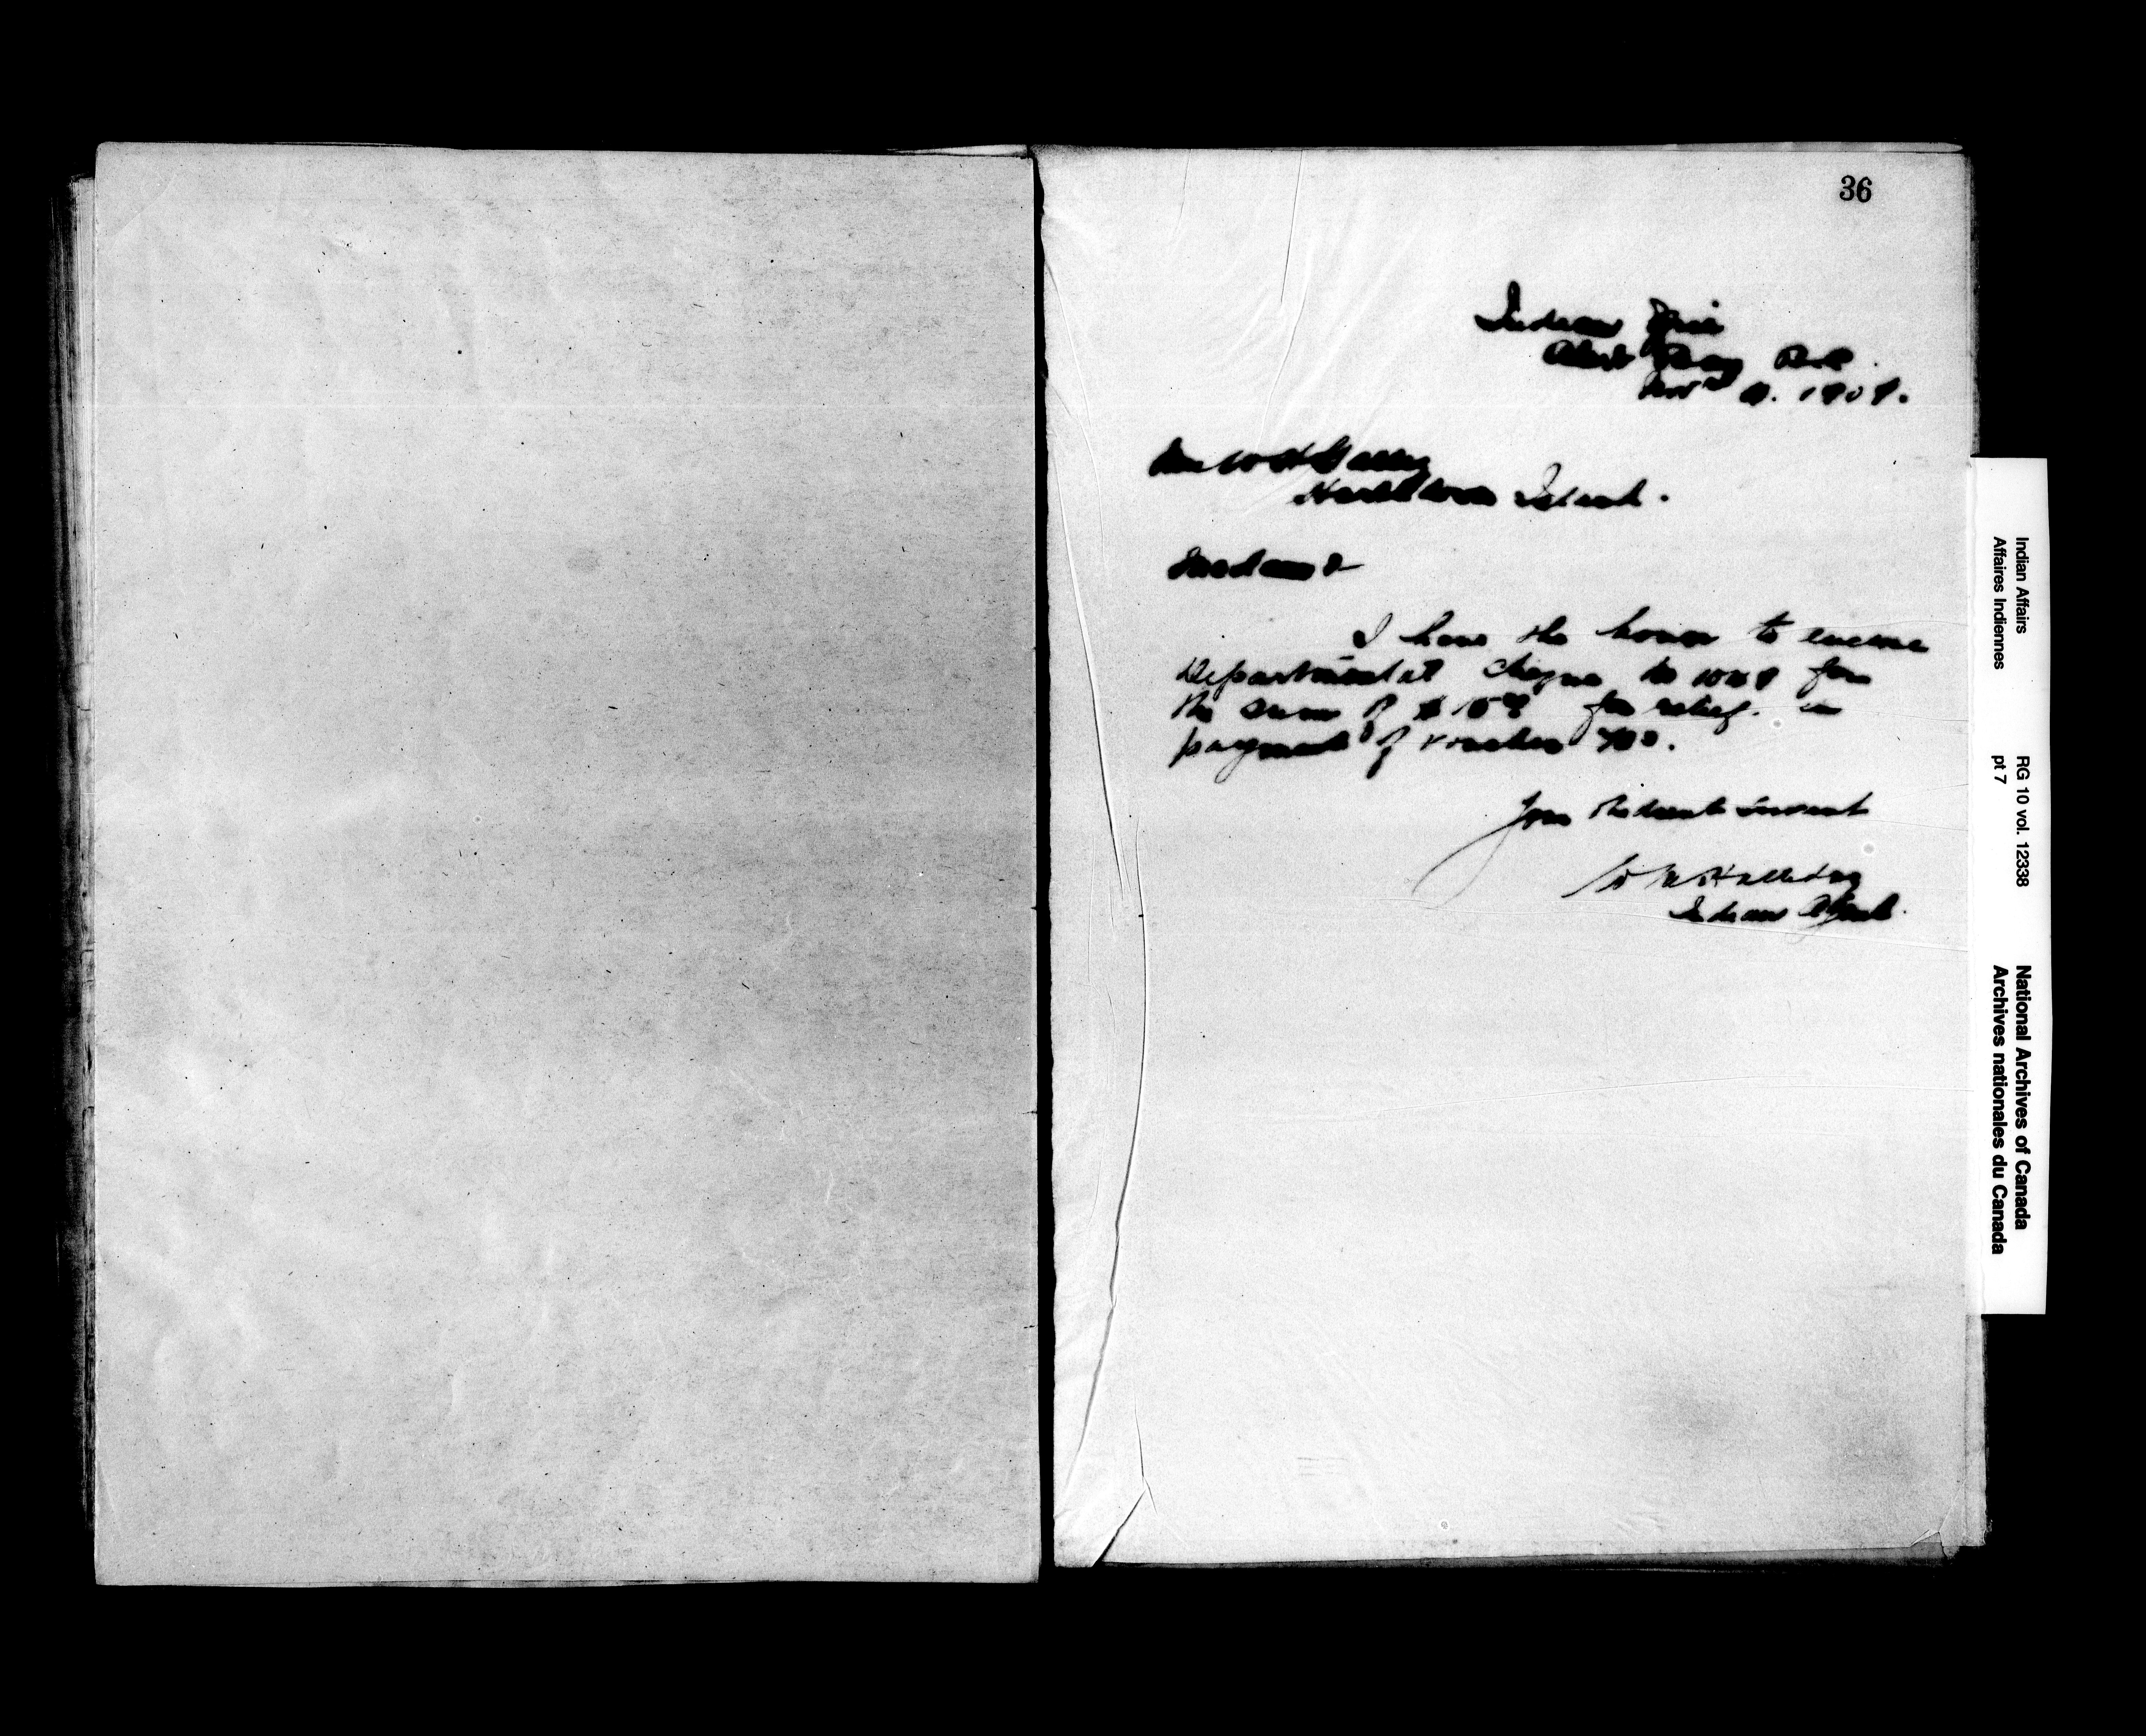 36
Indian Office
Alert Bay B.C.
Nov 1909.
Mrs W H
Island.
Madam
I have the honor to enclose
Departmental Cheque No for
the sum of $ for relief in
payment of voucher
Your Obedient Servant
W M Halliday
Indian Agent.
Indian Affairs RG 10 vol. 12338 National Archives of Canada
Affaires Indiennes pt 7 Archives nationales du Canada